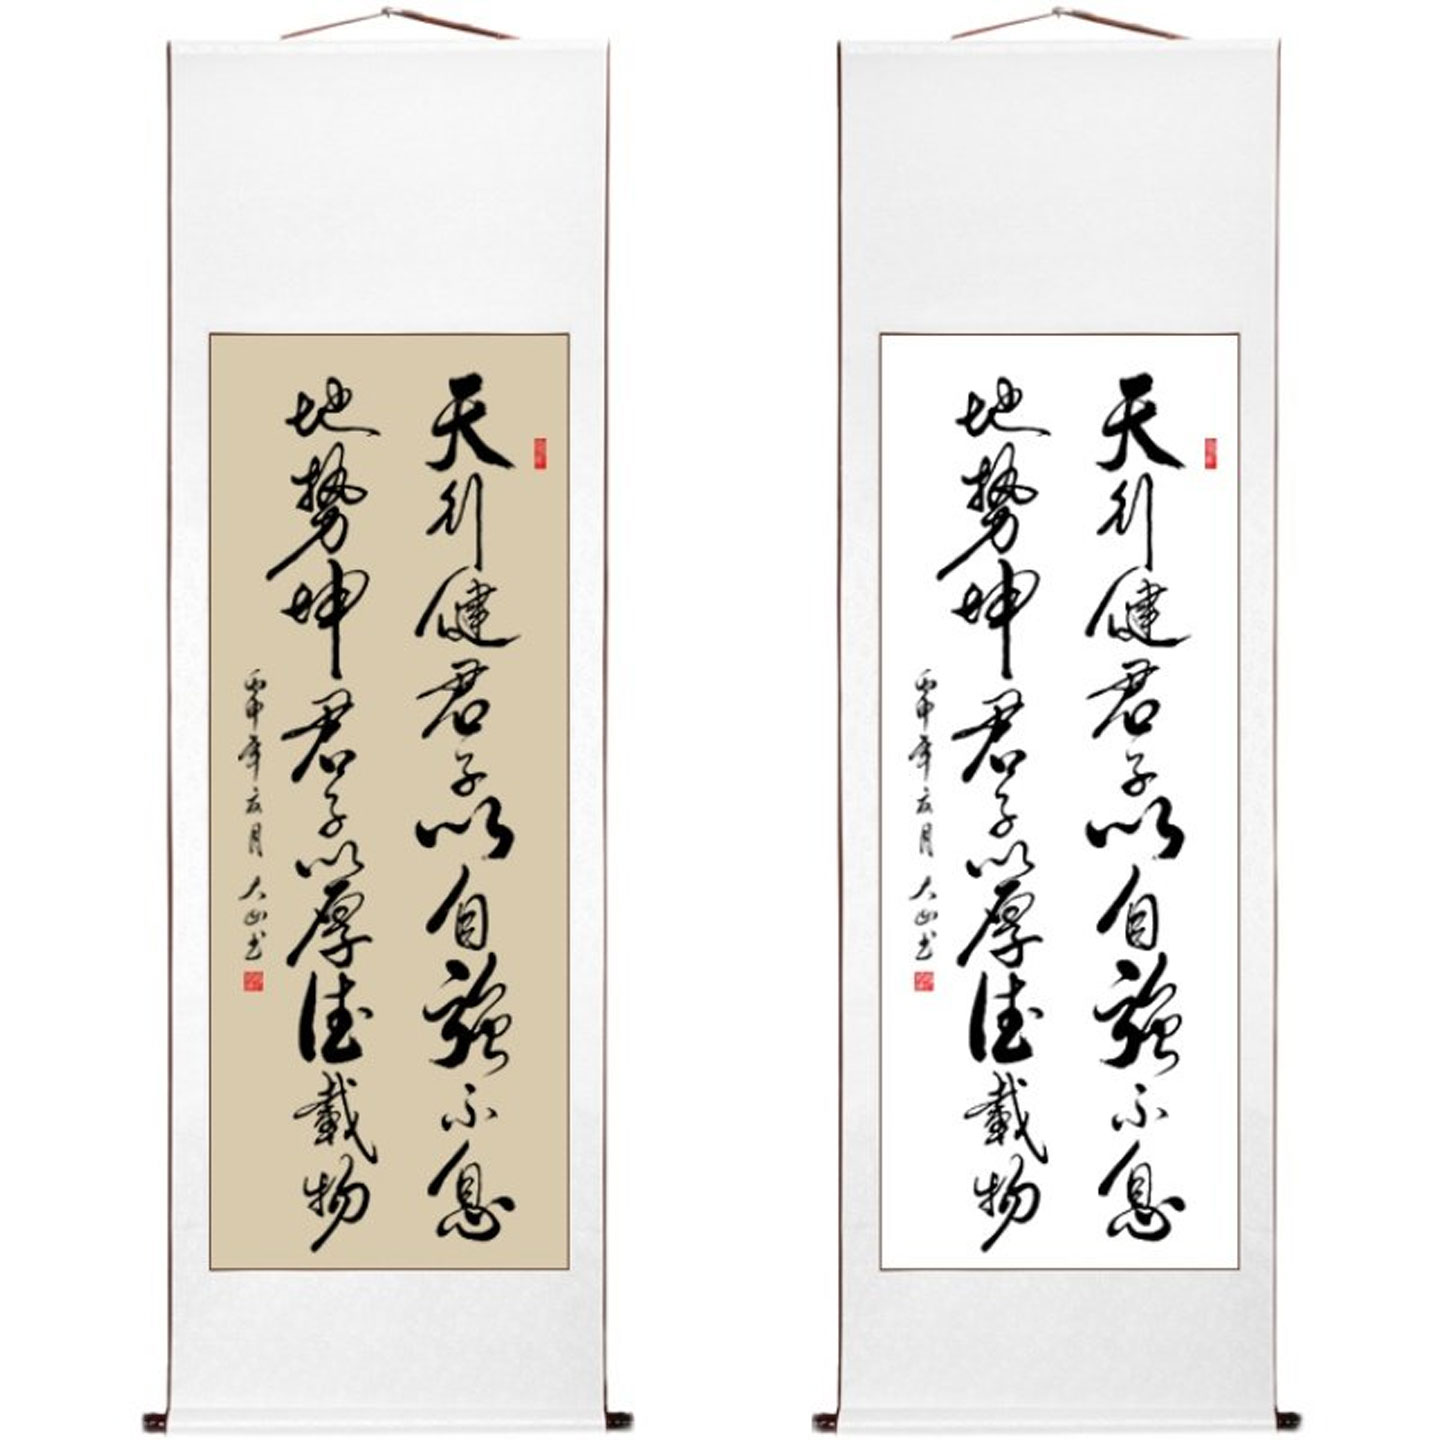 天行健君子以自强不息
地势坤君子以厚德载物
丙申年亥月 大山书
天行健君子以自强不息
地势坤君子以厚德载物
丙申年亥月 大山书